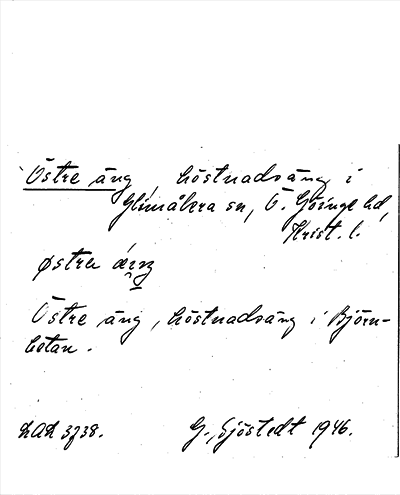 Östre äng, höstnadsäng i
Glimåkra sn, Ö. Göinge hd,
Krist. l.
østrə
Östre äng, höstnadsäng i Björn-
botan.
LAL 3738.
G. Sjöstedt 1946.